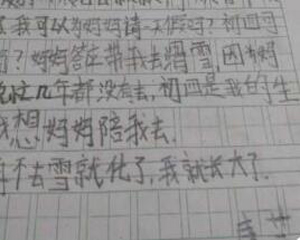 我可以为妈妈请一天假吗?初四可
?妈妈答应带我去滑雪,因为妈
忙几年都没有去,初四是我的生
想妈妈陪我去.
不去雪就化了,我就长大了.